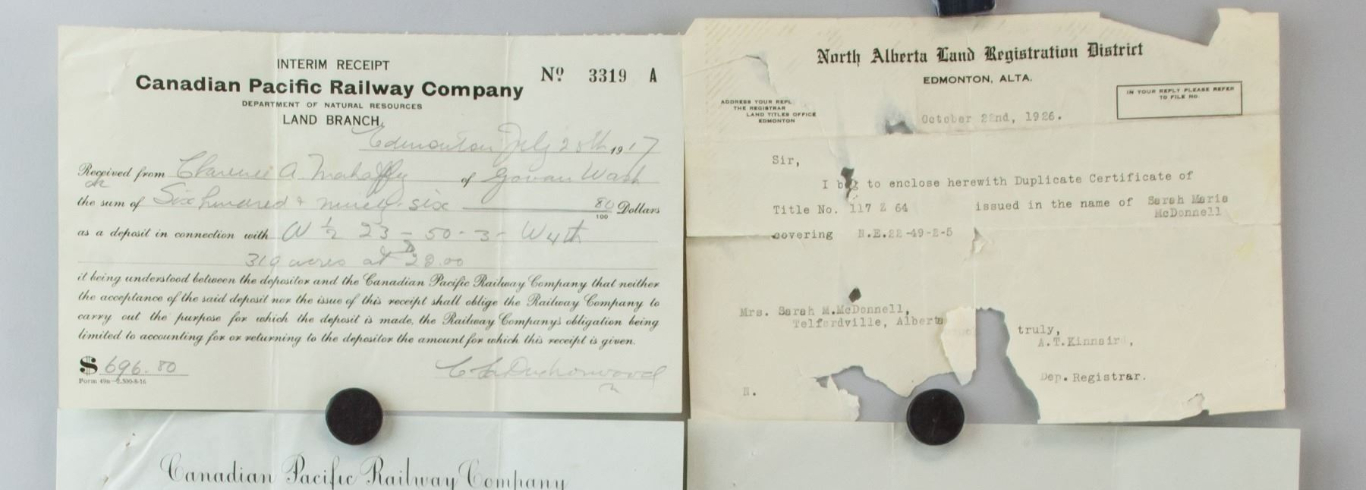 INTERIM RECEIPT
Canadian Pacific Railway Company
DEPARTMENT OF NATURAL RESOURCES
LAND BRANCH
Nº 3319 A
Edmonton July 28th 1917
Received from Clarence A. Mahaffy of Govan Wash
the sum of Six hundred & ninety-six 80/100 Dollars
as a deposit in connection with W ½ 23 - 50 - 3 - W4th
310 acres at 20.00
it being understood between the depositor and the Canadian Pacific Railway Company that neither
the acceptance of the said deposit nor the issue of this receipt shall oblige the Railway Company to
carry out the purpose for which the deposit is made, the Railway Company's obligation being
limited to accounting for or returning to the depositor the amount for which this receipt is given.
$ 696.80
Canadian Pacific Railway Company
North Alberta Land Registration District
EDMONTON, ALTA.
ADDRESS YOUR REPL
THE REGISTRAR
LAND TITLES OFFICE
EDMONTON
IN YOUR REPLY PLEASE REFER
TO FILE No.
October 22nd, 1926.
Sir,
I beg to enclose herewith Duplicate Certificate of
Title No. 117 Z 64 issued in the name of Sarah Marie
McDonnell
covering N.E.22-49-2-5
Mrs. Sarah M.McDonnell,
Telfordville, Alberta
truly,
A.T.Kinnaird,
Dep. Registrar.